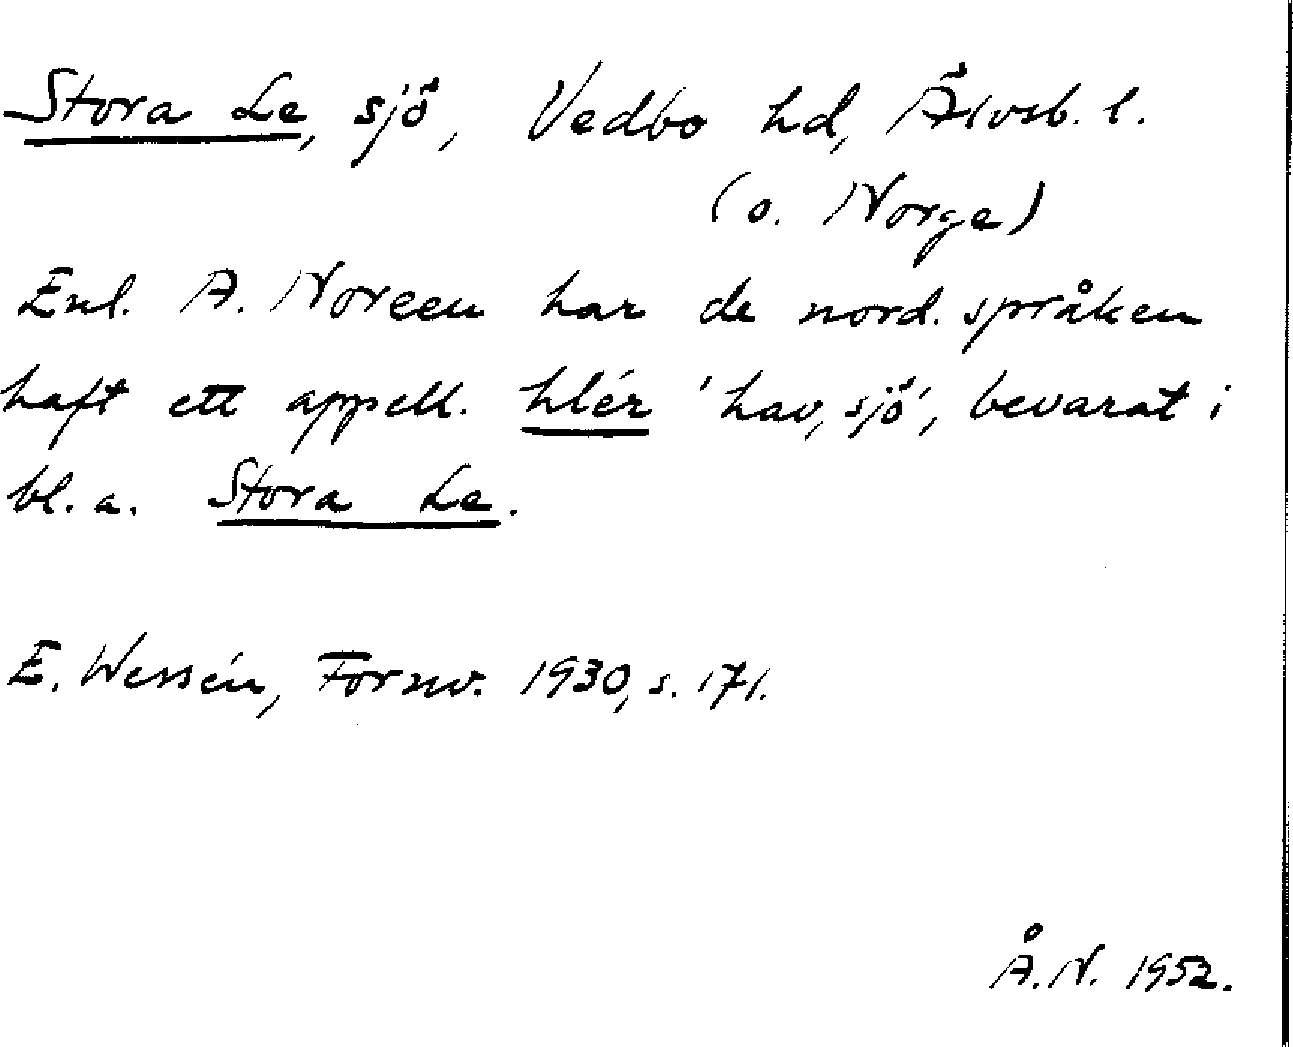 Stora Le, sjö, Vedbo hd, Älvsb. l.
(o. Norge)
Enl. A. Noreen har de nord. språken
haft ett appell. hlér 'hav, sjö', bevarat i
bl. a. Stora Le.
E. Wessén, Fornv. 1930, s. 171.
Å. N. 1952.